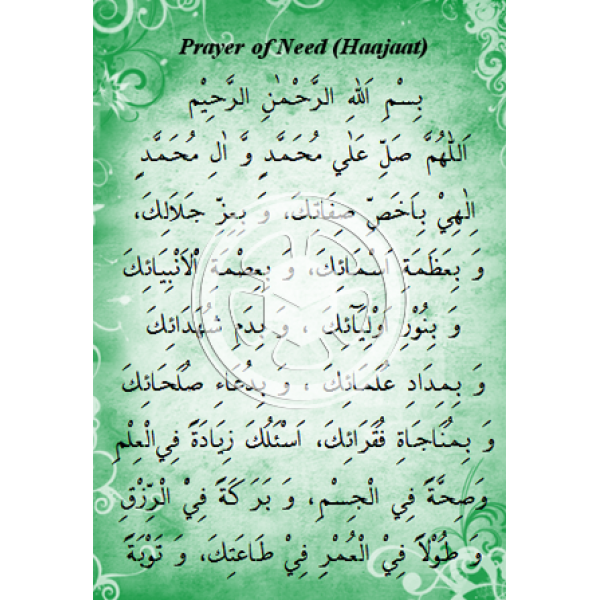 Prayer of Need (Haajaat)
بِسْمِ اَللهِ الرَّحْمٰنِ الرَّحِيْمِ
اَللّٰهُمَّ صَلِّ عَلٰي مُحَمَّدٍ وَّ اٰلِ مُحَمَّدٍ
اِلٰهِيْ بِاَخَصِّ صِفَاتِكَ، وَ بِعِزِّ جَلَالِكَ،
وَ بِعَظَمَةِ اَسْمَائِكَ، وَ بِعِصْمَةِ الْاَنْبِيَائِكَ
وَ بِنُوْرِ اَوْلِيَآئِكَ ، وَ بِدَمِ شُهَدَائِكَ
وَ بِمِدَادِ عُلَمَائِكَ ، وَ بِدُعَاءِ صُلَحَائِكَ
وَ بِمُنَاجَاةِ فُقَرَائِكَ، اَسْئَلُكَ زِيَادَةً فِي الْعِلْمِ
وَصِحَّةً فِي الْجِسْمِ، وَ بَرَكَةً فِيْ الْرِّزْقِ
وَ طُوْلًا فِيْ الْعُمْرِ فِيْ طَاعَتِكَ، وَ تَوْبَةً